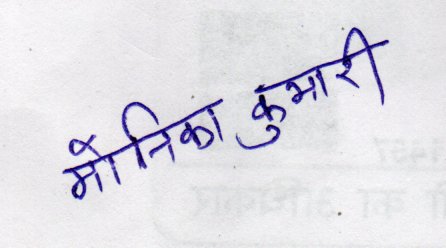 मोनिका कुमारी